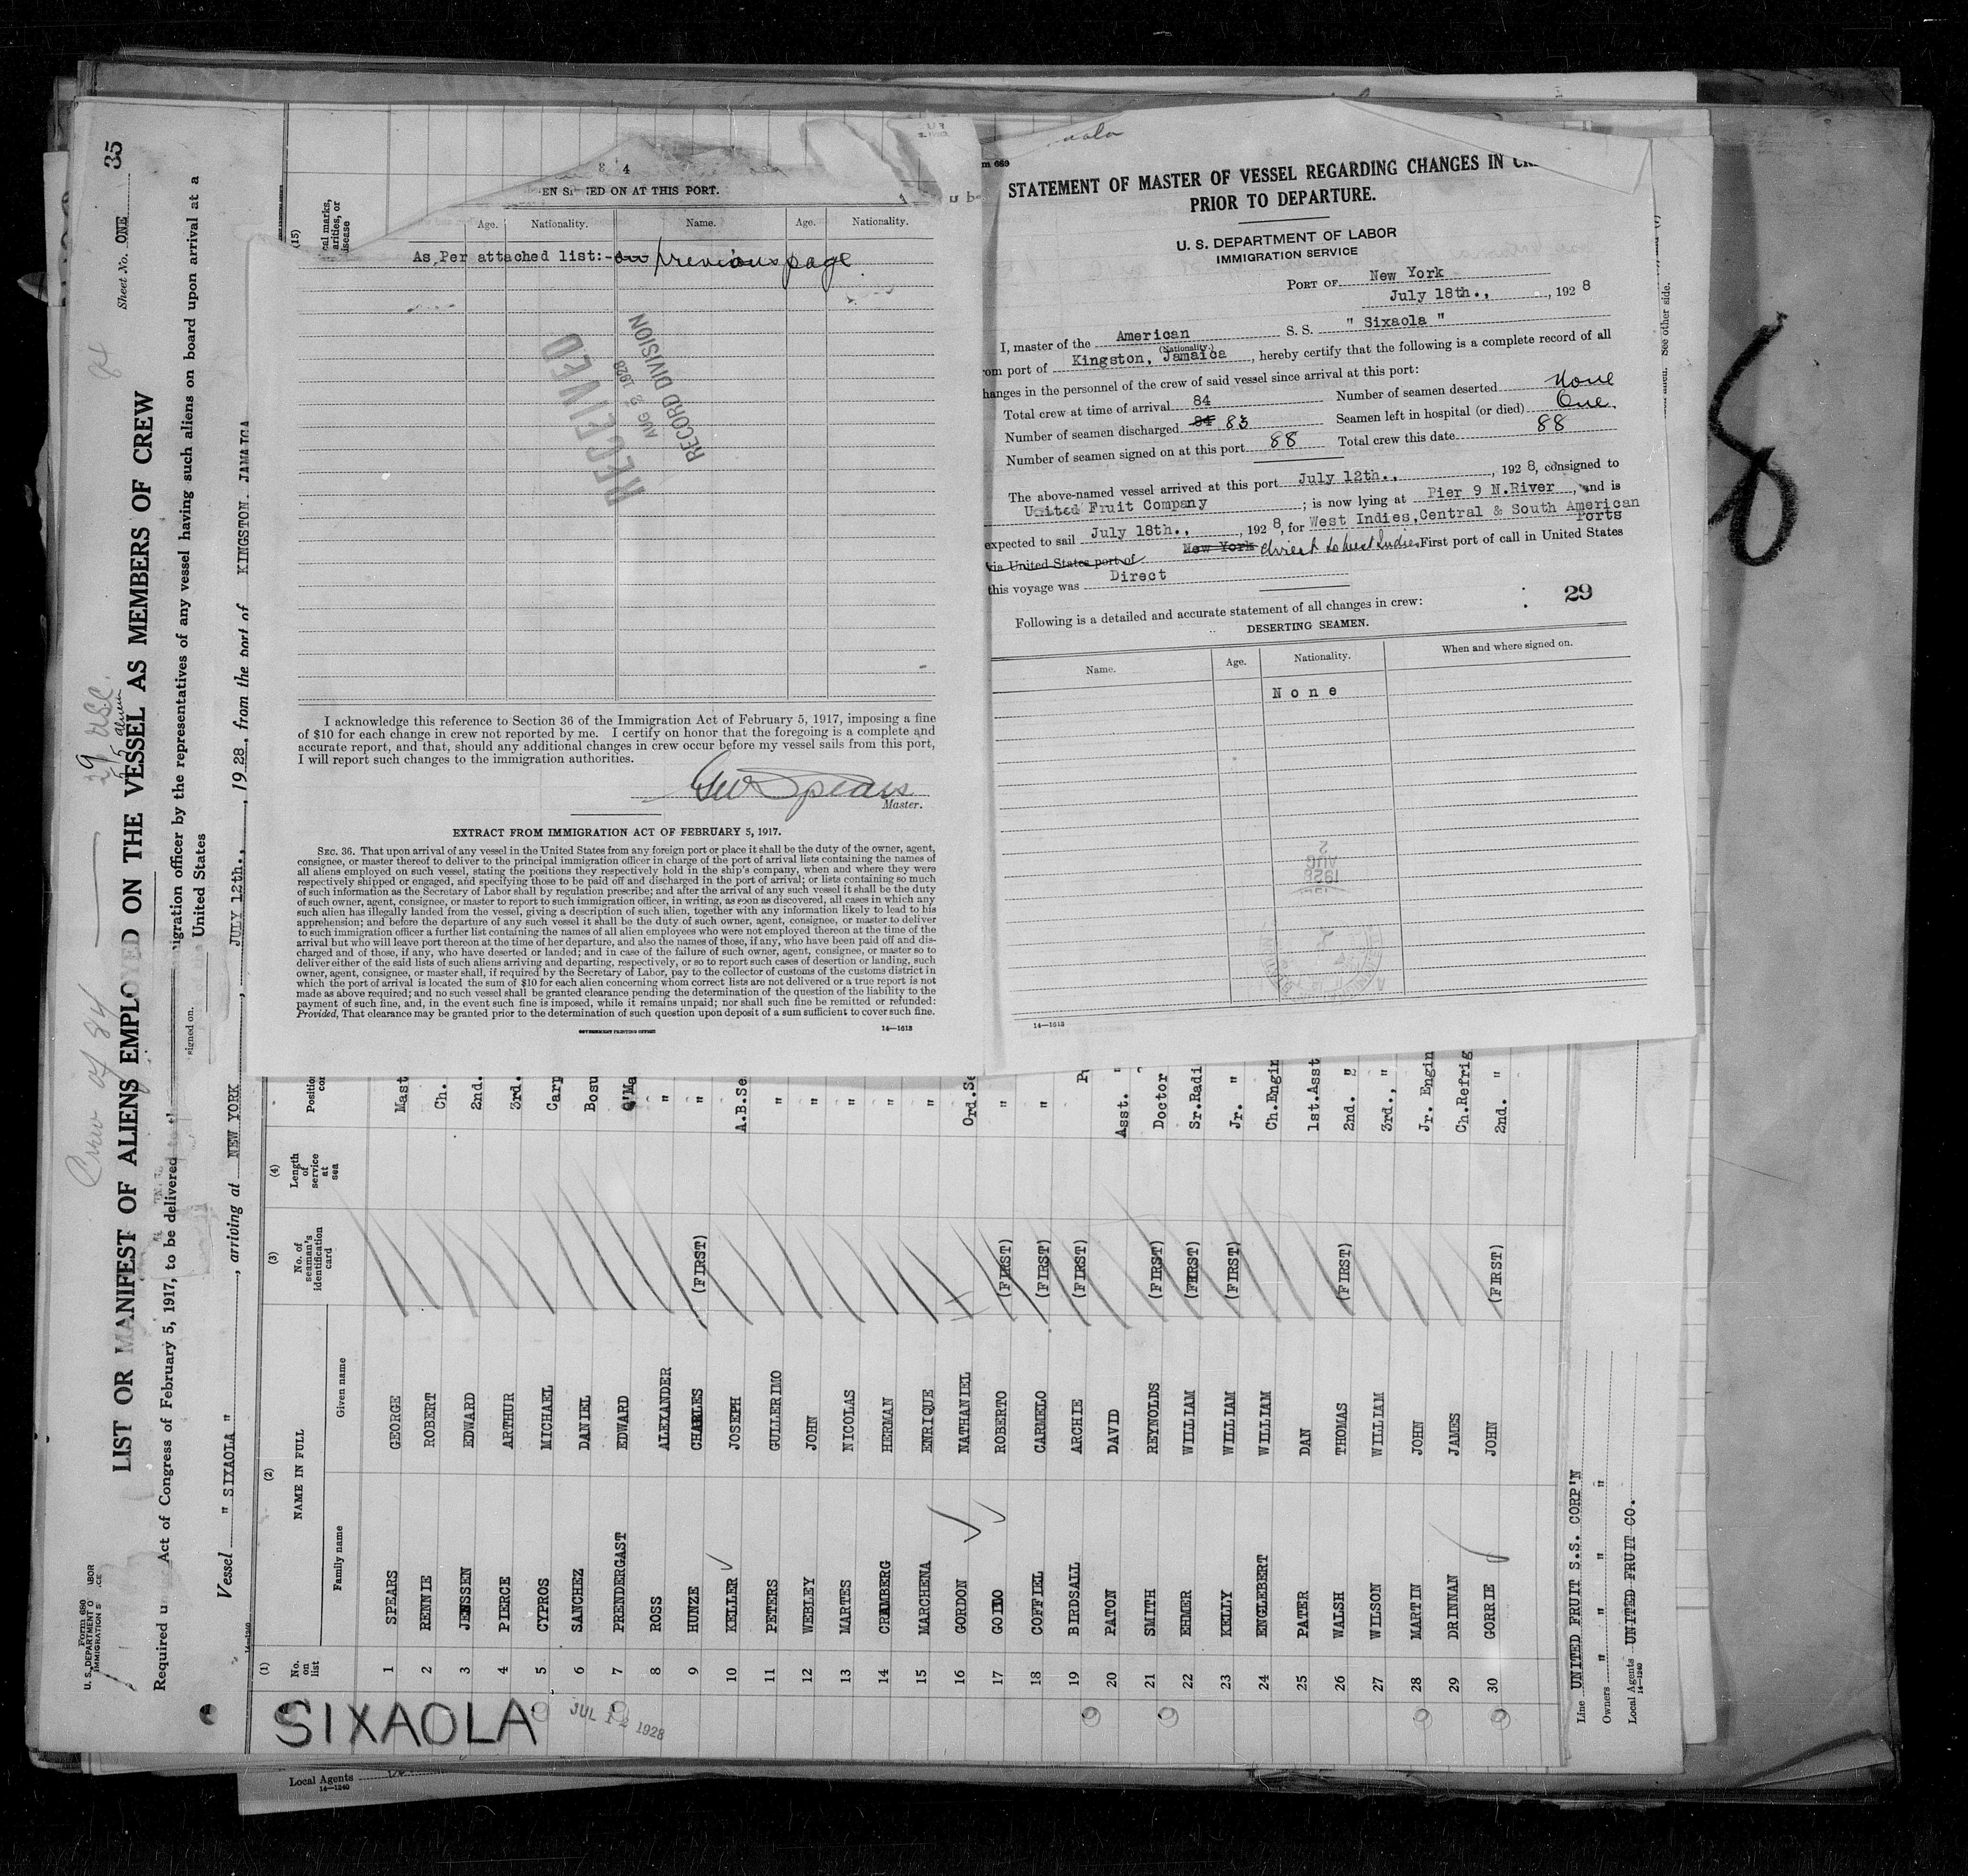 35
Sheet No. ONE
LIST OR MANIFEST OF ALIENS EMPLOYED ON THE VESSEL AS MEMBERS OF CREW
Crew of 84
Form 680
U. S. DEPARTMENT O
ABOR
IMMIGRATION S
CE
Required u
Act of Congress of February 5, 1917, to be delivered
igration officer by the representatives of any vessel having such aliens on board upon arrival at a
United States
signed on.
Vessel " SIXAOLA " , arriving at NEW YORK , JULY 12th., , 1928, from the port of KINGSTON, JAMAICA
(1) (2) (3) (4)
No. on list
NAME IN FULL
Family name
Given name
No. of seaman's identification card
Length of service at sea
Position
(15)
1 SPEARS GEORGE Mast
2 RENNIE ROBERT Ch.
3 JENSSEN EDWARD 2nd.
4 PIERCE ARTHUR 3rd.
5 CYPROS MICHAEL Carp
6 SANCHEZ DANIEL Bosu
7 PRENDERGAST EDWARD Q'Ma
8 ROSS ALEXANDER "
9 HUNZE CHARLES (FIRST) "
10 KELLER JOSEPH A.B.Se
11 PETERS GULLERIMO "
12 WEBLEY JOHN "
13 MARTES NICOLAS "
14 CHAMBERG HERMAN "
15 MARCHENA ENRIQUE "
16 GORDON NATHANIEL Ord.Se
17 GOITO ROBERTO (FIRST) "
18 COFFIEL CARMELO (FIRST) "
19 BIRDSALL ARCHIE (FIRST)
20 PATON DAVID Asst. "
21 SMITH REYNOLDS (FIRST) Doctor
22 EHMER WILLIAM (FIRST) Sr.Radi
23 KELLY WILLIAM (FIRST) Jr. "
24 ENGLEBERT WILLIAM Ch.Engin
25 PATER DAN 1st.Asst
26 WALSH THOMAS (FIRST) 2nd. "
27 WILSON WILLIAM 3rd., "
28 MARTIN JOHN Jr. Engin
29 DRINNAN JAMES Ch.Refrig
30 GORRIE JOHN (FIRST) 2nd. "
SIXAOLA
JUL 12 1928
Line UNITED FRUIT S.S. CORP'N
Owners " " " "
Local Agents UNITED FRUIT CO.
14—1240
Local Agents
14—1240
See other side.
8 4
ED ON AT THIS PORT.
Age. Nationality. Name. Age. Nationality.
As Per attached list:- on previous page
RECEIVED
AUG 2 1928
RECORD DIVISION
I acknowledge this reference to Section 36 of the Immigration Act of February 5, 1917, imposing a fine
of $10 for each change in crew not reported by me. I certify on honor that the foregoing is a complete and
accurate report, and that, should any additional changes in crew occur before my vessel sails from this port,
I will report such changes to the immigration authorities.
Geo Spears
Master.
EXTRACT FROM IMMIGRATION ACT OF FEBRUARY 5, 1917.
SEC. 36. That upon arrival of any vessel in the United States from any foreign port or place it shall be the duty of the owner, agent,
consignee, or master thereof to deliver to the principal immigration officer in charge of the port of arrival lists containing the names of
all aliens employed on such vessel, stating the positions they respectively hold in the ship's company, when and where they were
respectively shipped or engaged, and specifying those to be paid off and discharged in the port of arrival; or lists containing so much
of such information as the Secretary of Labor shall by regulation prescribe; and after the arrival of any such vessel it shall be the duty
of such owner, agent, consignee, or master to report to such immigration officer, in writing, as soon as discovered, all cases in which any
such alien has illegally landed from the vessel, giving a description of such alien, together with any information likely to lead to his
apprehension; and before the departure of any such vessel it shall be the duty of such owner, agent, consignee, or master to deliver
to such immigration officer a further list containing the names of all alien employees who were not employed thereon at the time of the
arrival but who will leave port thereon at the time of her departure, and also the names of those, if any, who have been paid off and dis-
charged and of those, if any, who have deserted or landed; and in case of the failure of such owner, agent, consignee, or master so to
deliver either of the said lists of such aliens arriving and departing, respectively, or so to report such cases of desertion or landing, such
owner, agent, consignee, or master shall, if required by the Secretary of Labor, pay to the collector of customs of the customs district in
which the port of arrival is located the sum of $10 for each alien concerning whom correct lists are not delivered or a true report is not
made as above required; and no such vessel shall be granted clearance pending the determination of the question of the liability to the
payment of such fine, and, in the event such fine is imposed, while it remains unpaid; nor shall such fine be remitted or refunded:
Provided, That clearance may be granted prior to the determination of such question upon deposit of a sum sufficient to cover such fine.
GOVERNMENT PRINTING OFFICE
14—1613
STATEMENT OF MASTER OF VESSEL REGARDING CHANGES IN
PRIOR TO DEPARTURE.
U. S. DEPARTMENT OF LABOR
IMMIGRATION SERVICE
PORT OF New York
July 18th., , 192 8
I, master of the American S. S. " Sixaola "
(Nationality.)
om port of Kingston, Jamaica , hereby certify that the following is a complete record of all
hanges in the personnel of the crew of said vessel since arrival at this port:
Total crew at time of arrival 84 Number of seamen deserted None
Number of seamen discharged 84 83 Seamen left in hospital (or died) One
Number of seamen signed on at this port 88 Total crew this date 88
The above-named vessel arrived at this port July 12th., , 192 8, consigned to
United Fruit Company ; is now lying at Pier 9 N.River , and is
expected to sail July 18th., , 192 8, for West Indies, Central & South American Ports
via United States port of New York direct to West Indies First port of call in United States
this voyage was Direct
29
Following is a detailed and accurate statement of all changes in crew:
DESERTING SEAMEN.
Name. Age. Nationality. When and where signed on.
None
AUG 2 1928
14—1613